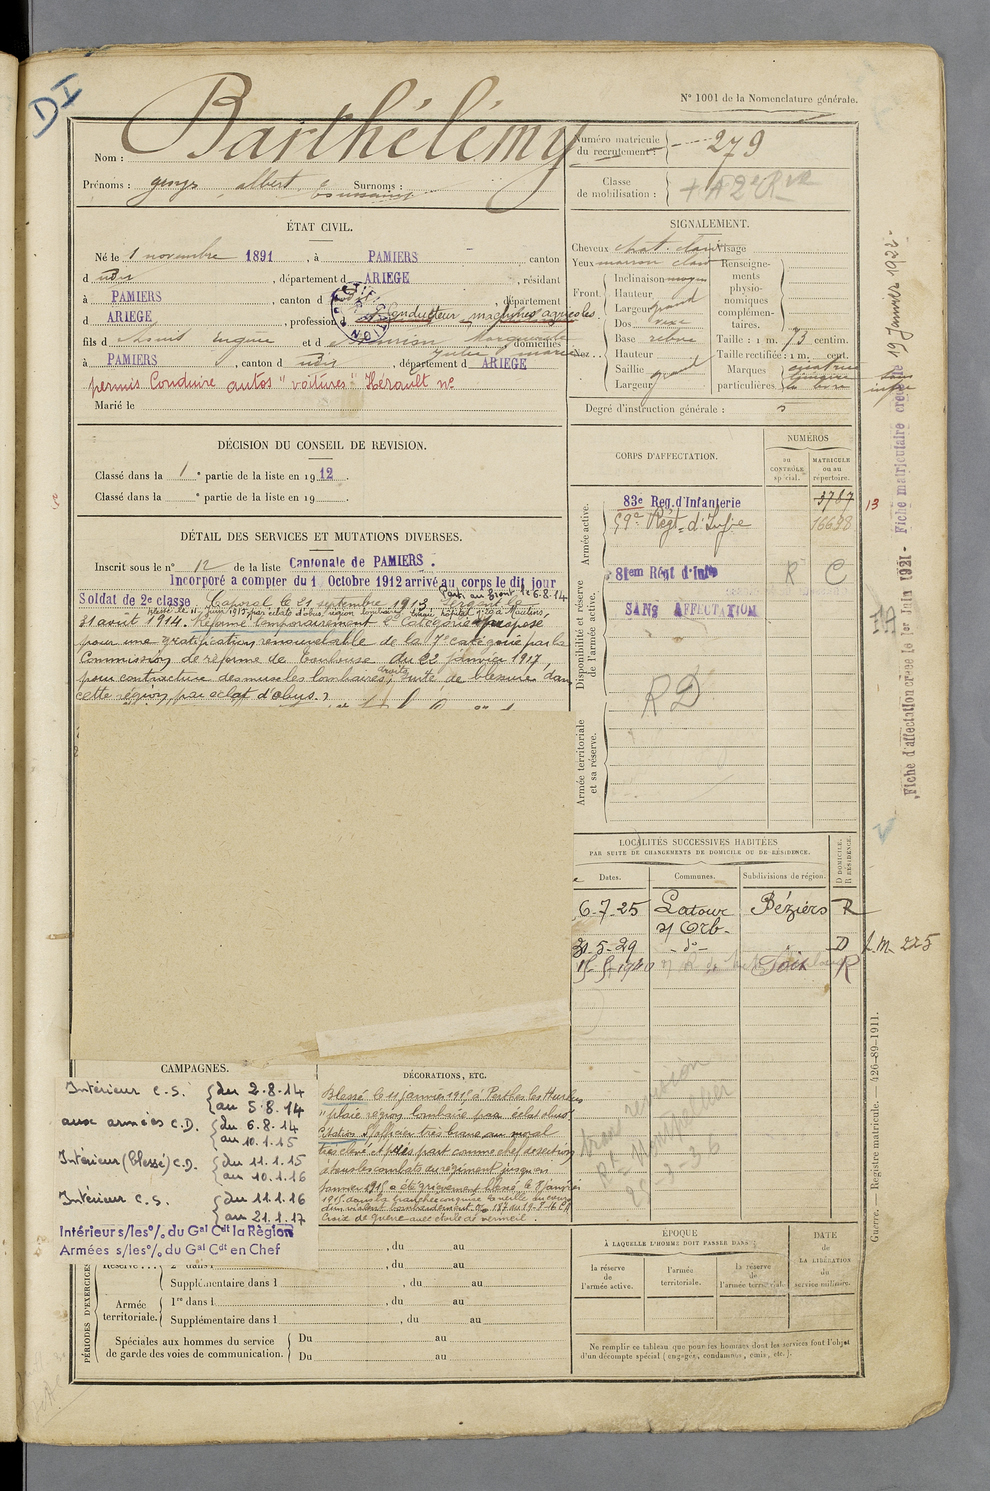 DI
N° 1001 de la Nomenclature générale.
Nom : Barthélémy
Prénoms : georges albert Toussaint Surnoms :
Numéro matricule du recrutement : 279
Classe de mobilisation :
ÉTAT CIVIL.
Né le 1 novembre 1891, à PAMIERS canton
d udit, département d ARIEGE, résidant
à PAMIERS, canton d, département
d ARIEGE, profession d Conducteur machines agricoles.
fils d et d Marguerite Julie Marie, domiciliés
à PAMIERS, canton d udit, département d ARIEGE
permis Conduire autos "voitures" Hérault n°
Marié le
SIGNALEMENT.
Cheveux chat. clair Visage
Yeux marron clair
Front. Inclinaison moyen
Hauteur
Largeur grand
Nez. Dos
Base
Hauteur
Saillie
Largeur grand
Renseignements physionomiques complémentaires.
Taille : 1 m. 73 centim.
Taille rectifiée : 1 m. cent.
Marques particulières.
Degré d'instruction générale : 3
DÉCISION DU CONSEIL DE REVISION.
Classé dans la 1e partie de la liste en 1912.
Classé dans la e partie de la liste en 19
DÉTAIL DES SERVICES ET MUTATIONS DIVERSES.
Inscrit sous le n° 12 de la liste Cantonale de PAMIERS.
Incorporé a compter du 1 Octobre 1912 arrivé au corps le dit jour
Parti au front le 6-8-14
Soldat de 2e classe Caporal le 21 septembre 1913. Sergent le
31 aout 1914. Réformé temporairement 1e Catégorie proposé
pour une gratification renouvelable de la 7e catégorie par la
Commission de réforme de Toulouse du 22 janvier 1917,
pour contracture des muscles lombaires droits, suite de blessure dans
cette région, par eclat d'obus.
CORPS D'AFFECTATION.
NUMÉROS
au CONTRÔLE spécial.
MATRICULE ou au répertoire.
Armée active.
83e Reg. d'Infanterie 3787 13
59e Régt d'Infie 16628
Disponibilité et réserve de l'armée active.
81em Régt d'Infie R C
SANS AFFECTATION
RD
Armée territoriale et sa réserve.
Fiche d'affectation créée le 1er Juin 1921 - Fiche matriculaire créée le 19 Janvier 1922 -
LOCALITÉS SUCCESSIVES HABITÉES
PAR SUITE DE CHANGEMENTS DE DOMICILE OU DE RÉSIDENCE.
Dates. Communes. Subdivisions de région. D DOMICILE. R RÉSIDENCE.
6-7-25 Latour s/ Orb - Béziers R
31-5-29 - do - D f.m. 225
15-5-1940 Foix R
CAMPAGNES.
Intérieur C.S. du 2-8-14
au 5-8-14
aux armées C.D. du 6-8-14
au 10.1.15
Intérieur (blessé) C.D. du 11.1.15
au 10.1.16
Intérieur C.S. du 11.1.16
au 21.1.17
Intérieur s/les o/. du Gal Cdt la Région
Armées s/les o/. du Gal Cdt en Chef
DÉCORATIONS, ETC.
Blessé le 11 janvier 1915 à Perthes les Hurlus
"plaie région lombaire par éclat obus"
Citation S/officier très brave au moral
très élevé a pris part comme chef de section
à tous les combats du régiment jusqu'en
janvier 1915 a été grièvement blessé le 8 janvier
1915 dans la tranchée conquise la veille au cours
d'un violent bombardement
Croix de guerre avec étoile de vermeil.
PÉRIODES D'EXERCICES
Réserve 2e dans l, du au
Supplémentaire dans l, du au
Armée territoriale. 1re dans l, du au
Supplémentaire dans l, du au
Spéciales aux hommes du service de garde des voies de communication. Du au
Du au
ÉPOQUE
À LAQUELLE L'HOMME DOIT PASSER DANS :
la réserve de l'armée active.
l'armée territoriale.
la réserve de l'armée territoriale.
DATE de LA LIBÉRATION du service militaire.
Ne remplir ce tableau que pour les hommes dont les services font l'objet
d'un décompte spécial (engagés, condamnés, omis, etc.).
Guerre. — Registre matricule. — 426-89-1911.